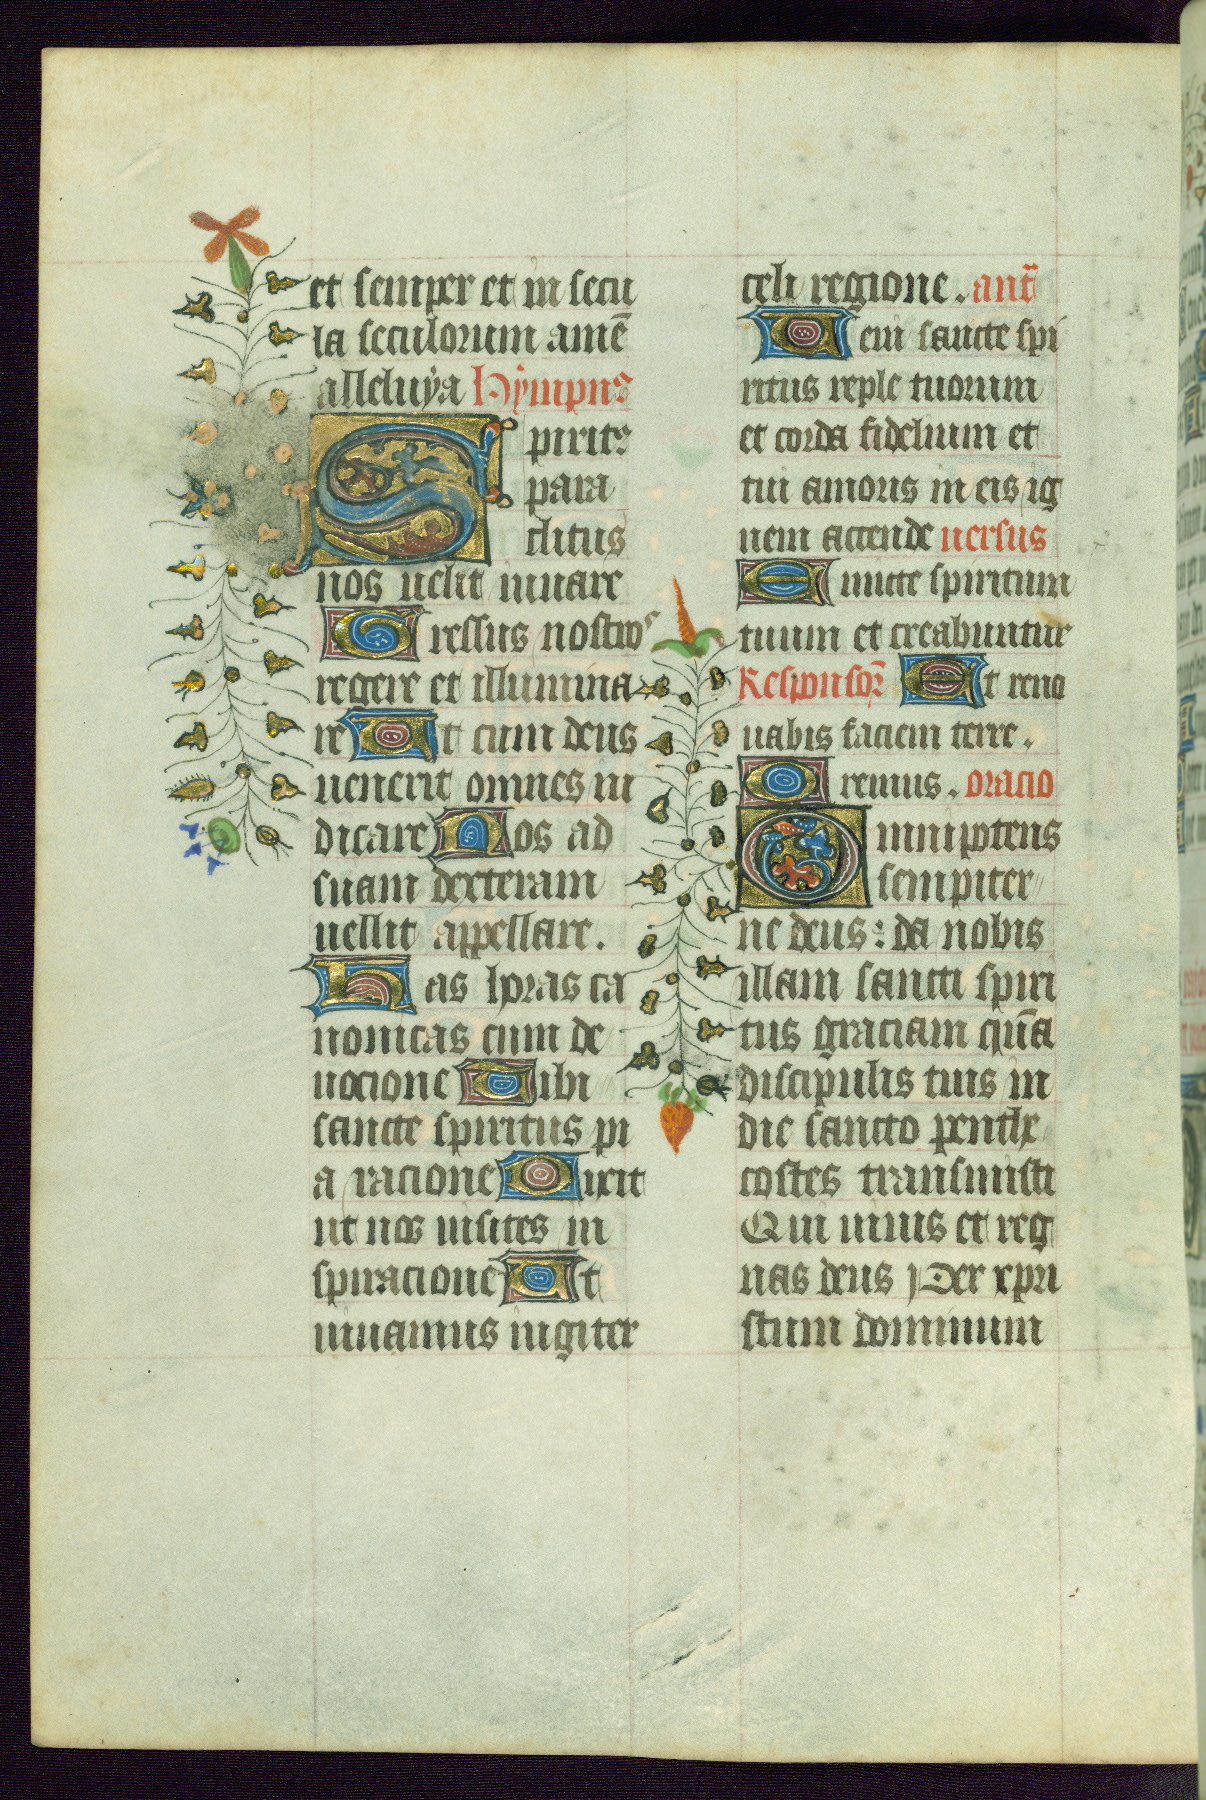 et semper et in secu
la seculorum amē
alleluÿa Hÿmpnꝰ
Spiritꝰ
para
clitus
nos uelit iuuare
Gressus nostros
regere et illumina
re Ut cum deus
uenerit omnes iu
dicare Nos ad
suam dexteram
uellit appellare.
Has horas ca
nonicas cum de
uocione Tibi
sancte spiritus pi
a racione Dixit
ut nos uisites in
spiracione Ut
uiuamus iugiter
celi regione. ant̄
Ueni sancte spi
ritus reple tuorum
et corda fidelium et
tui amoris in eis ig
nem accende uersus
Emitte spiritum
tuum et creabuntur
Responsor̄ Et reno
uabis faciem terre.
Oremus. oracio
Omnipotens
sempiter
ne deus: da nobis
illam sancti spiri
tus graciam quā
discipulis tuis in
die sancto penthe
costes transmisti
Qui uiuis et reg
nas deus Per xpri
stum dominum